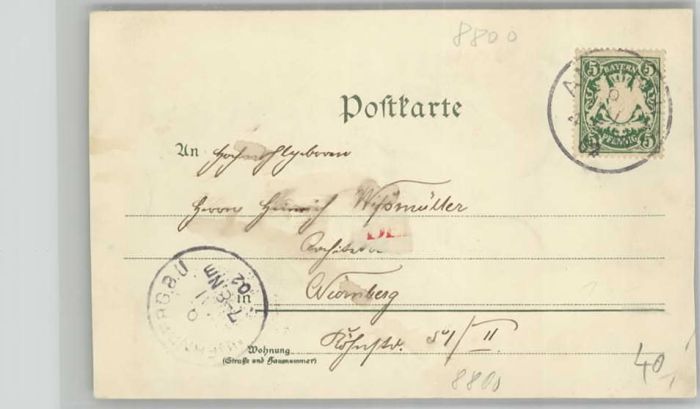 8800
5 BAYERN 5
5 PFENNIG 5
Postkarte
An Hochwohlgeboren
Herrn Heinrich Wißmüller
Architekt
in Nürnberg
7-8 Nm
02
Wohnung
(Straße und Hausnummer)
II
8800
40,